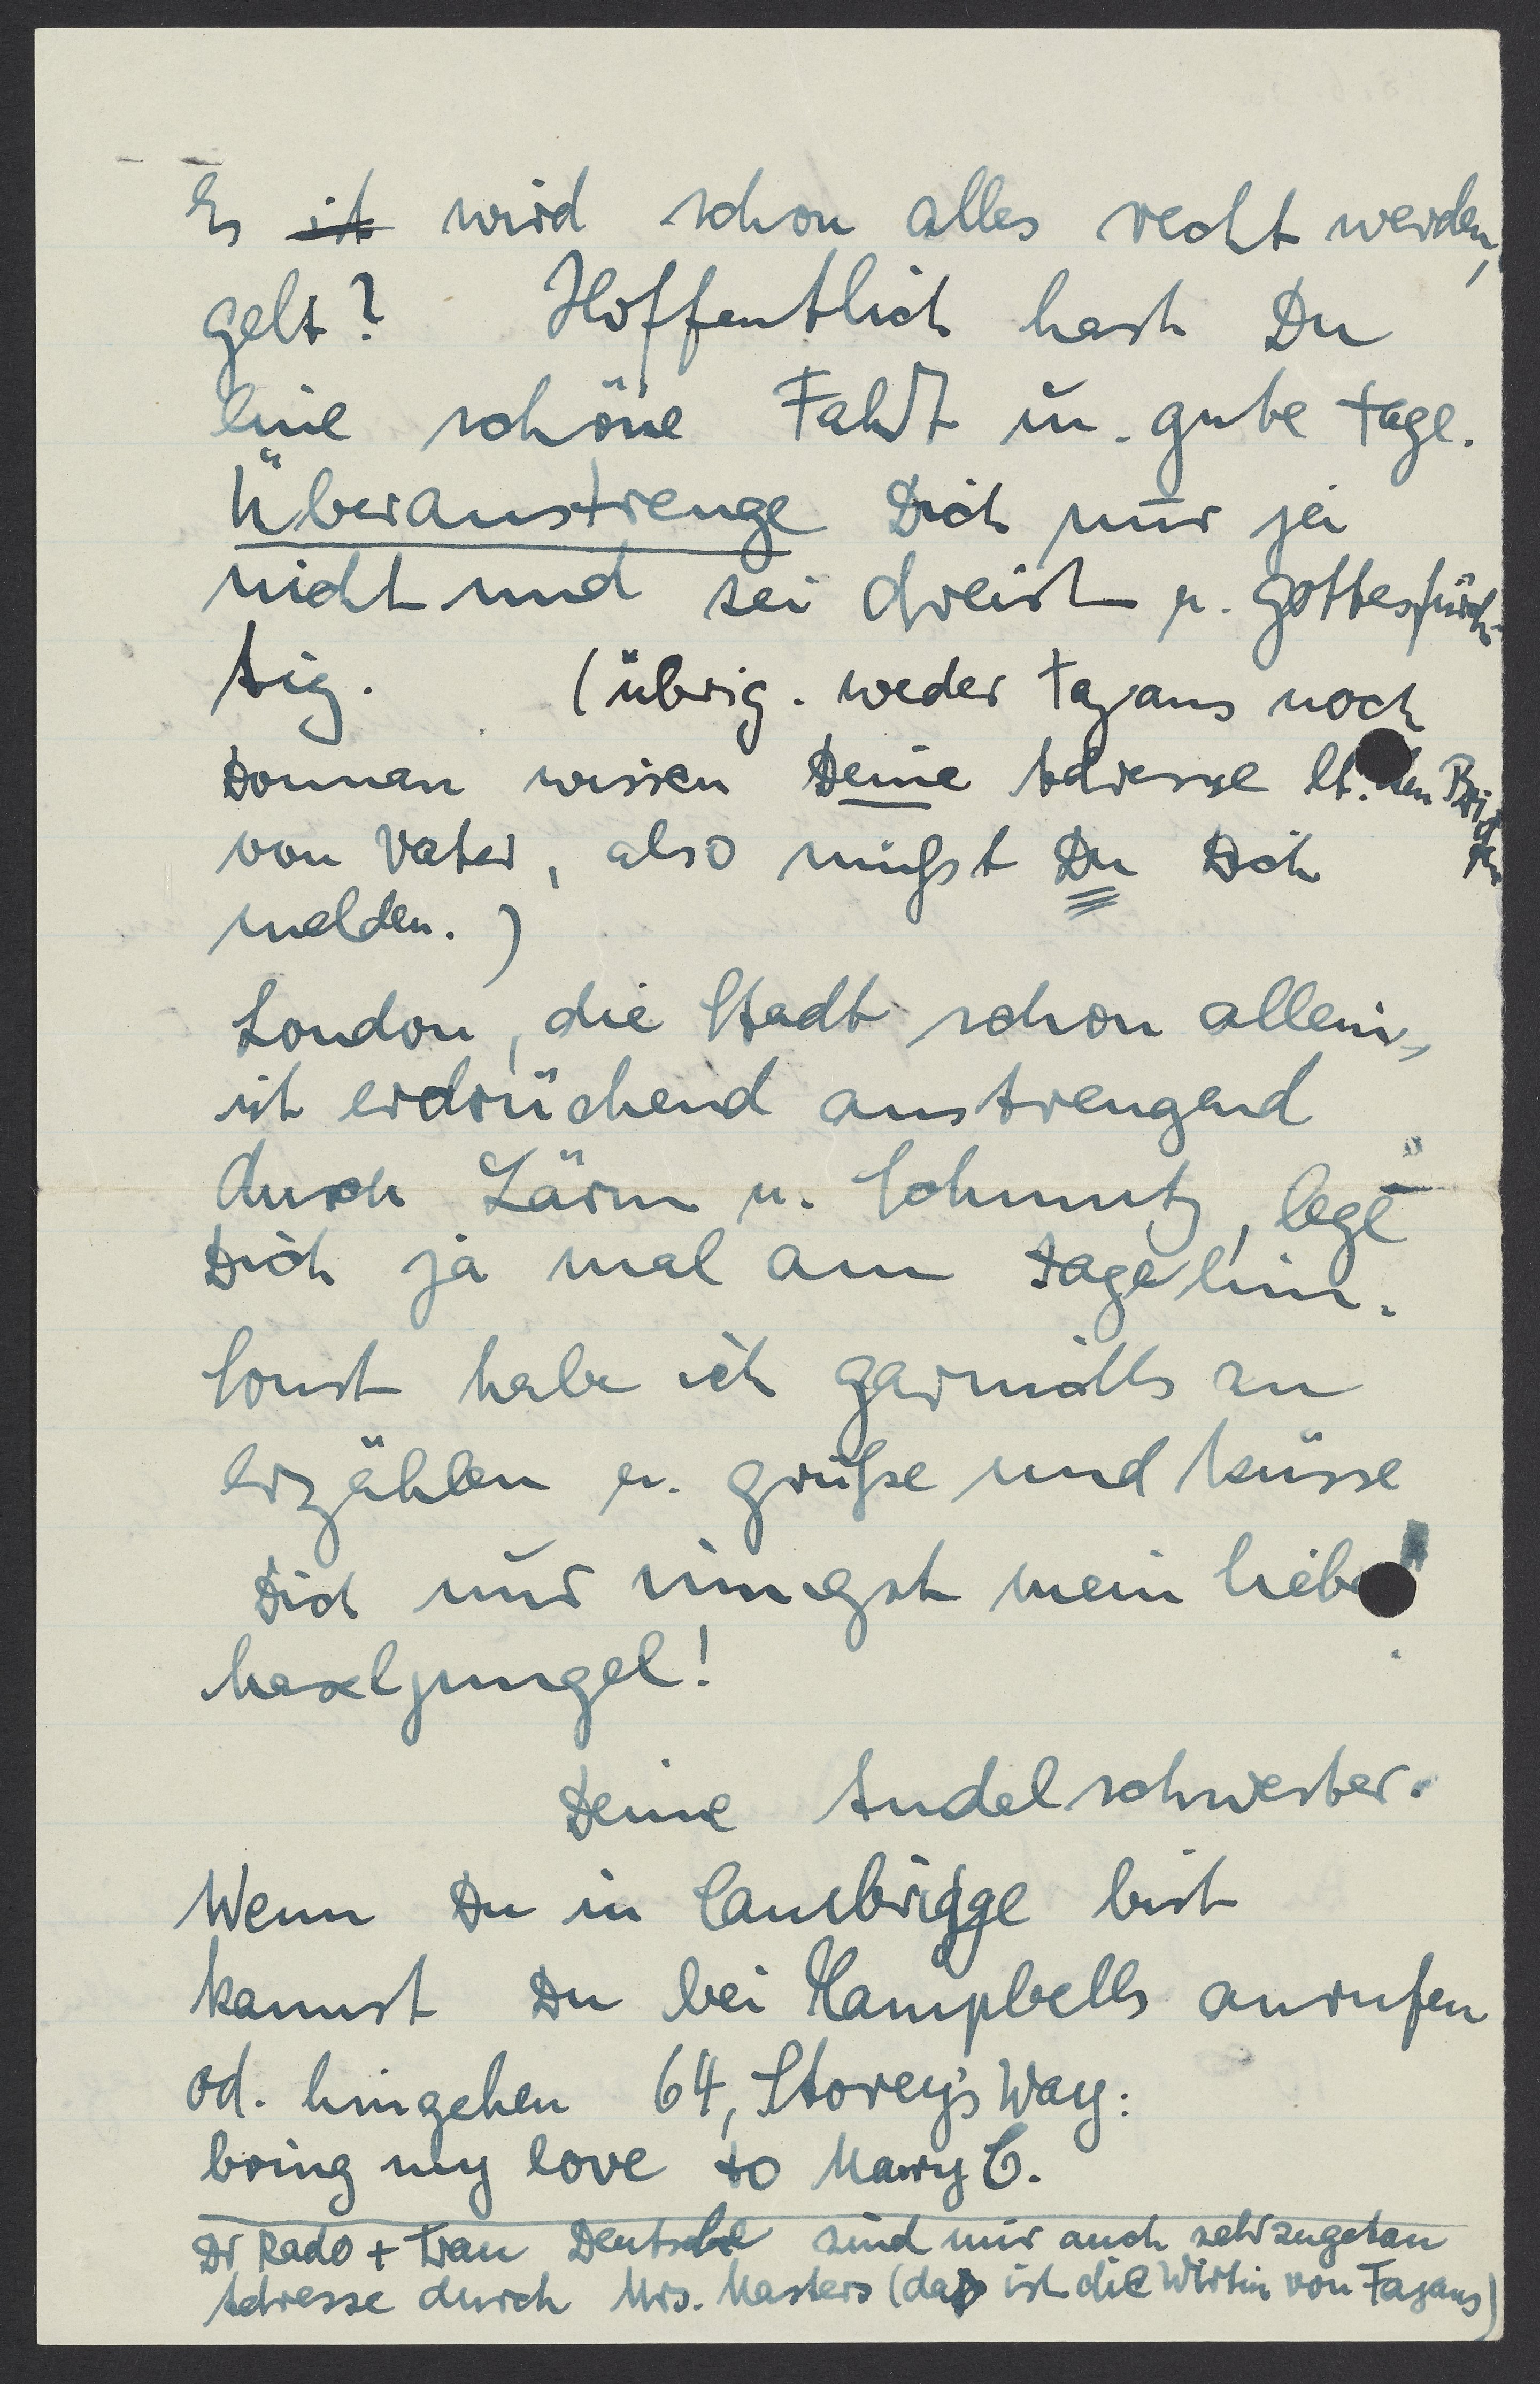 Es ist wird schon alles recht werden,
gelt? Hoffentlich hast Du
eine schöne Fahrt u. gute Tage.
Überanstrenge Dich nur ja
nicht und sei dreist u. gottesfürch-
tig. (übrig. weder Fajans noch
Donnan wissen Deine Adresse lt. den
von Vater, also mußt Du Dich
melden.)
London, die Stadt schon allein,
ist erdrückend anstrengend
durch Lärm u. Schmutz, lege
Dich ja mal am Tage hin.
Sonst habe ich garnichts zu
erzählen u. grüße und küsse
Dich nur innigst mein liebes
haseljungel!
Deine Andelschwester.
Wenn Du in Cambrigge bist
kannst Du bei Kampbells anrufen
od. hingehen 64, Storey's Way:
bring my love to Mary C.
Dr Rado + Frau Deutsche sind mir auch sehr zugetan
Adresse durch Mrs. Masters (das ist die Wirtin von Fajans)